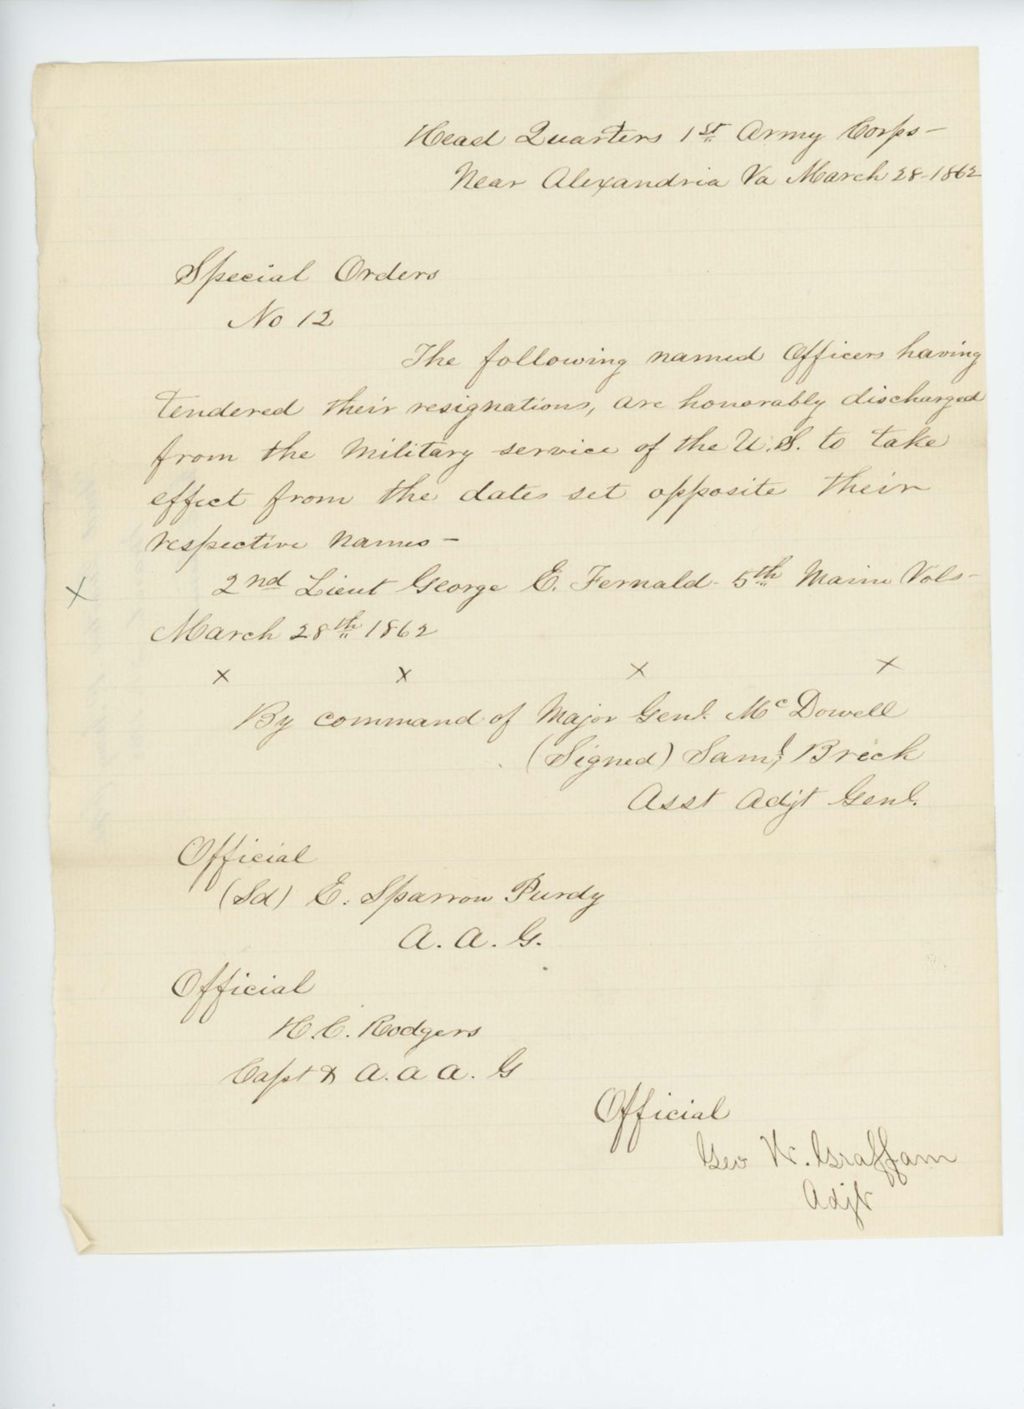 Head Quarters 1st Army Corps-
Near Alexandria Va March 28-1862
Special Orders
No 12
The following named Officers having
tendered their resignations, are honorably discharged
from the Military service of the U.S. to take
effect from the dates set opposite their
respective names-
x 2nd Lieut George E. Fernald- 5th Maine Vols-
March 28th 1862
x x x x
By command of Major Genl. McDowell
(Signed) Saml Breck
Asst Adjt Genl.
Official
(Sd) E. Sparrow Purdy
A. A. G.
Official
H. C. Rodgers
Capt & A. A A. G
Official
Geo W. Graffam
Adjt